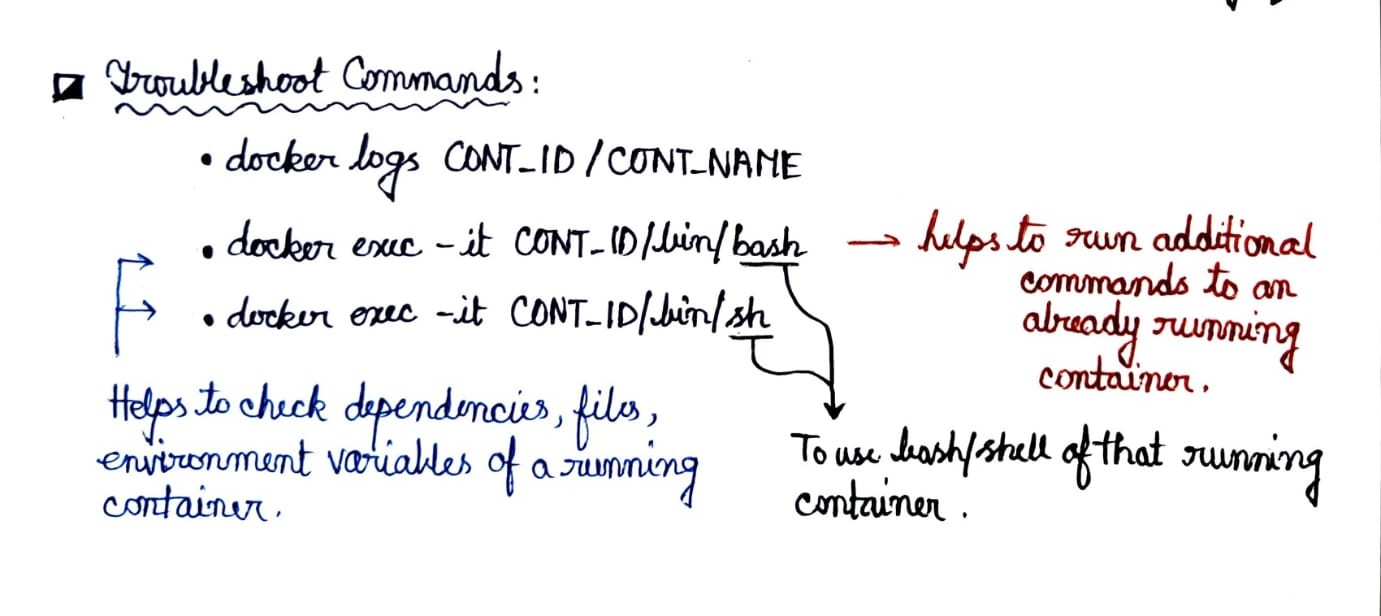 Troubleshoot Commands:
• docker logs CONT_ID / CONT_NAME
• docker exec -it CONT_ID/bin/bash → helps to run additional
commands to an
already running
container.
• docker exec -it CONT_ID/bin/sh
Helps to check dependencies, files,
environment variables of a running
container.
To use bash/shell of that running
container.